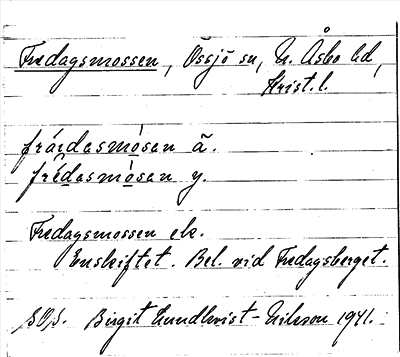 Fredagsmossen, Össjö sn, N. Åsbo hd,
Krist. l.
fráɪdasmósan ä.
frédasmósan y.
Fredagsmossen ek.
Enskiftet. Bel. vid Fredagsberget.
Birgit Lundkvist-Nilsson 1941.